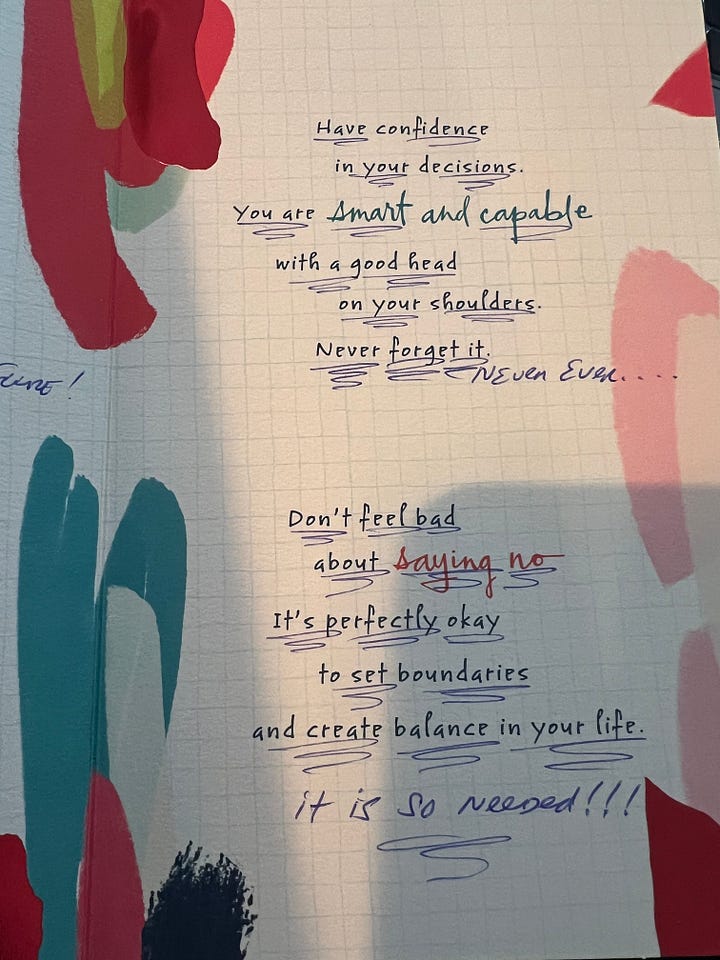 Have confidence
in your decisions.
You are smart and capable
with a good head
on your shoulders.
Never forget it.
Never Ever....
Don't feel bad
about saying no
It's perfectly okay
to set boundaries
and create balance in your life.
it is so Needed!!!